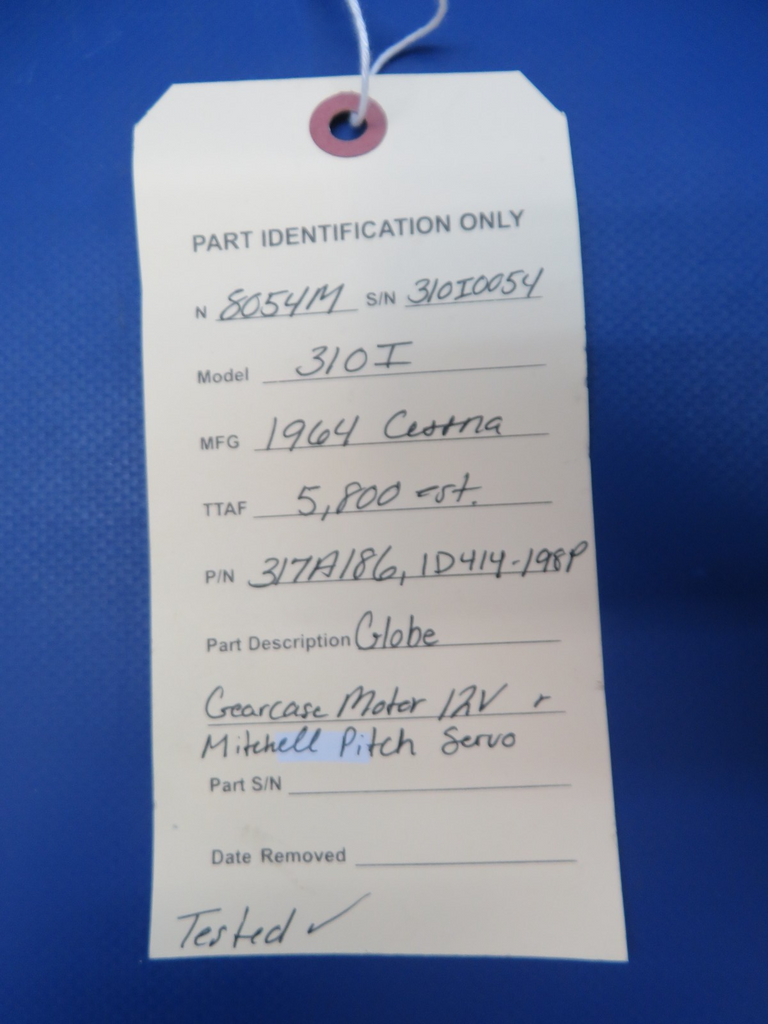 PART IDENTIFICATION ONLY
N 8054M S/N 310I0054
Model 310I
MFG 1964 Cessna
TTAF 5,800 est.
P/N 317A186, 1D414-198P
Part Description Globe
Gearcase Motor 12V
Mitchell Pitch Servo
Part S/N
Date Removed
Tested ✓